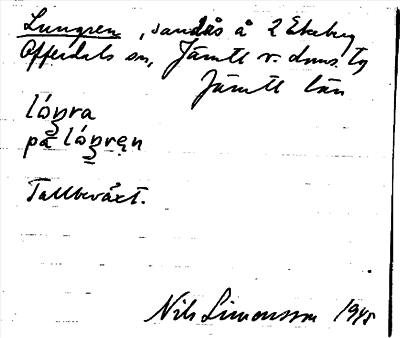 Lungren, sandås å 2 Ekeberg
Offerdals sn, Jämtl v. doms. tg
Jämtl län
lóŋra
på lóŋrən
Tallbeväxt.
Nils Simonsson 1945